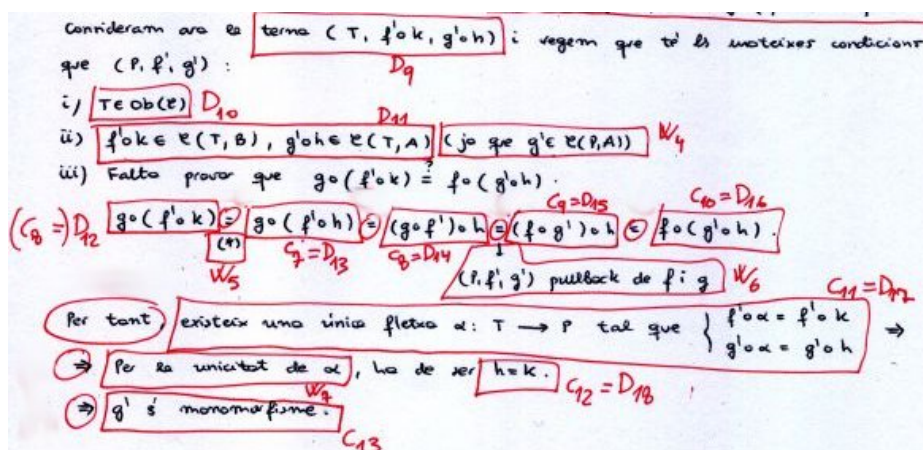 Consideram ara la terna (T, f'∘k, g'∘h) i vegem que té les mateixes condicions
D9
que (P, f', g') :
i) T∈Ob(𝒞) D10
D11
ii) f'∘k ∈ 𝒞(T,B), g'∘h ∈ 𝒞(T,A) (ja que g'∈ 𝒞(P,A)) W4
iii) Falta provar que g∘(f'∘k) ≟ f∘(g'∘h).
C9=D15 C10=D16
(C8 =) D12 g∘(f'∘k) = g∘(f'∘h) = (g∘f')∘h = (f∘g')∘h = f∘(g'∘h).
(*) C7=D13 C8=D14
W5 (P, f', g') pullback de f i g W6
C11=D17
Per tant, existeix una única fletxa α: T → P tal que { f'∘α = f'∘k ⇒
g'∘α = g'∘h
⇒ Per la unicitat de α, ha de ser h=k. C12=D18
W7
⇒ g' és monomorfisme.
C13